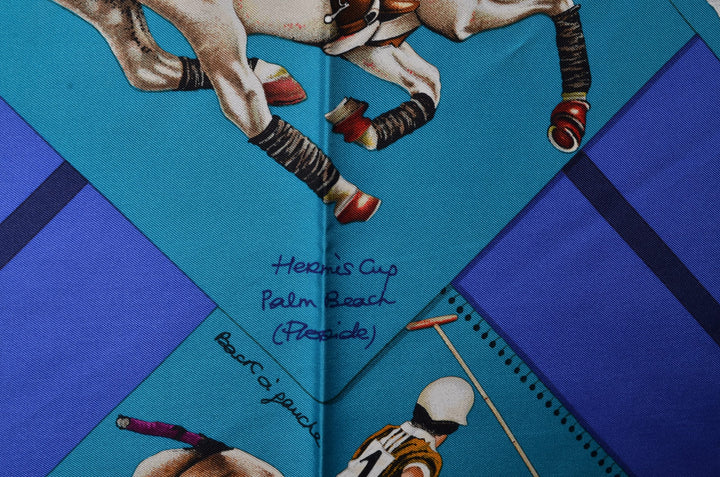 Hermès Cup
Palm Beach
(Floride)
Back à gauche
1